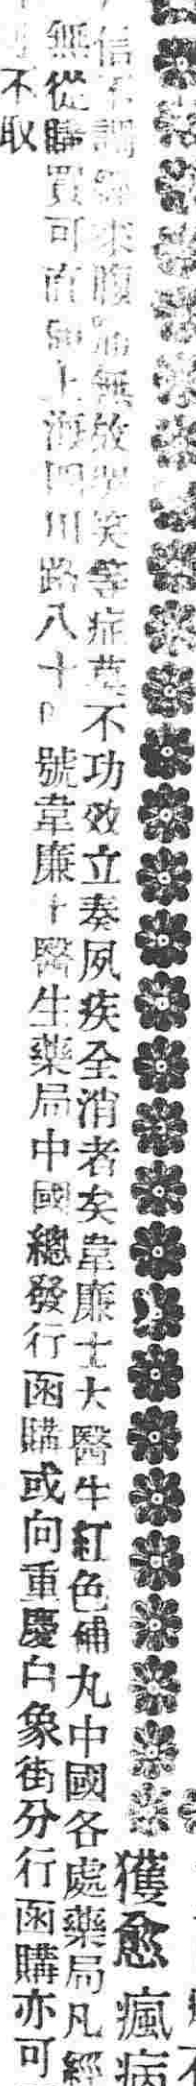 獲愈瘋病
信不調經來腹痛無故哭笑等症莫不功效立奏夙疾全消者矣韋廉士大醫生紅色補丸中國各處藥局凡經
無從購買可直向上海四川路八十四號韋廉士醫生藥局中國總發行函購或向重慶白象街分行函購亦可
不取